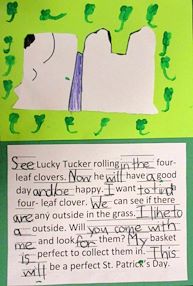 See Lucky Tucker rolling in the four-
leaf clovers. Now he will have a good
day and be happy. I want to find
four-leaf clover. We can see if there
are any outside in the grass. I like to
a outside. Will you come with
me and look for them? My basket
is perfect to collect them in. This
will be a perfect St. Patrick's Day.